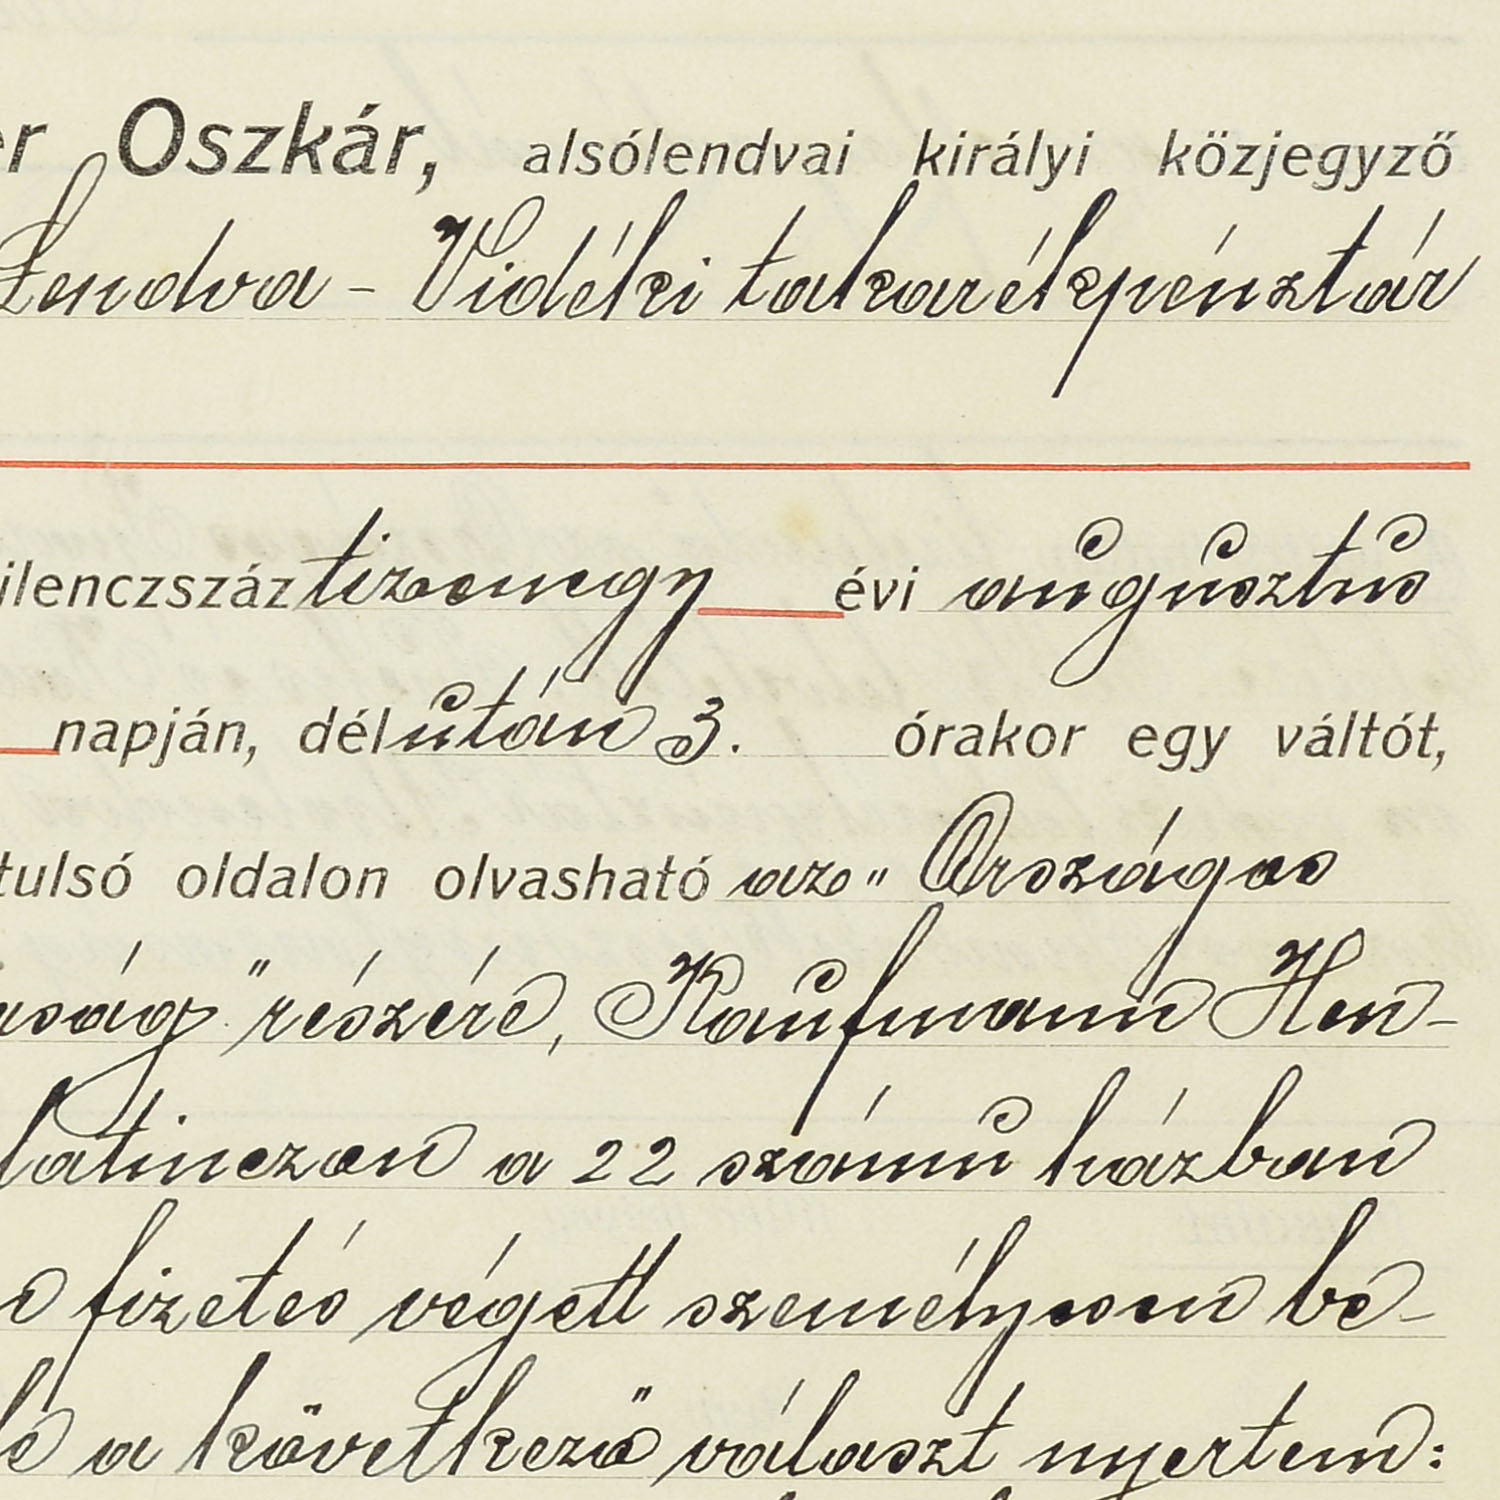 er Oszkár, alsólendvai királyi közjegyző
Lendva - Vidéki takarékpénztár
ilenczszáztizenegy évi augusztus
napján, délután 3. órakor egy váltót,
tulsó oldalon olvasható az „Országos
uság" részére, Kaufmann Hen-
latinczan a 22 számú házban
fizetés végett személyesen be-
lé a következő választ nyertem: